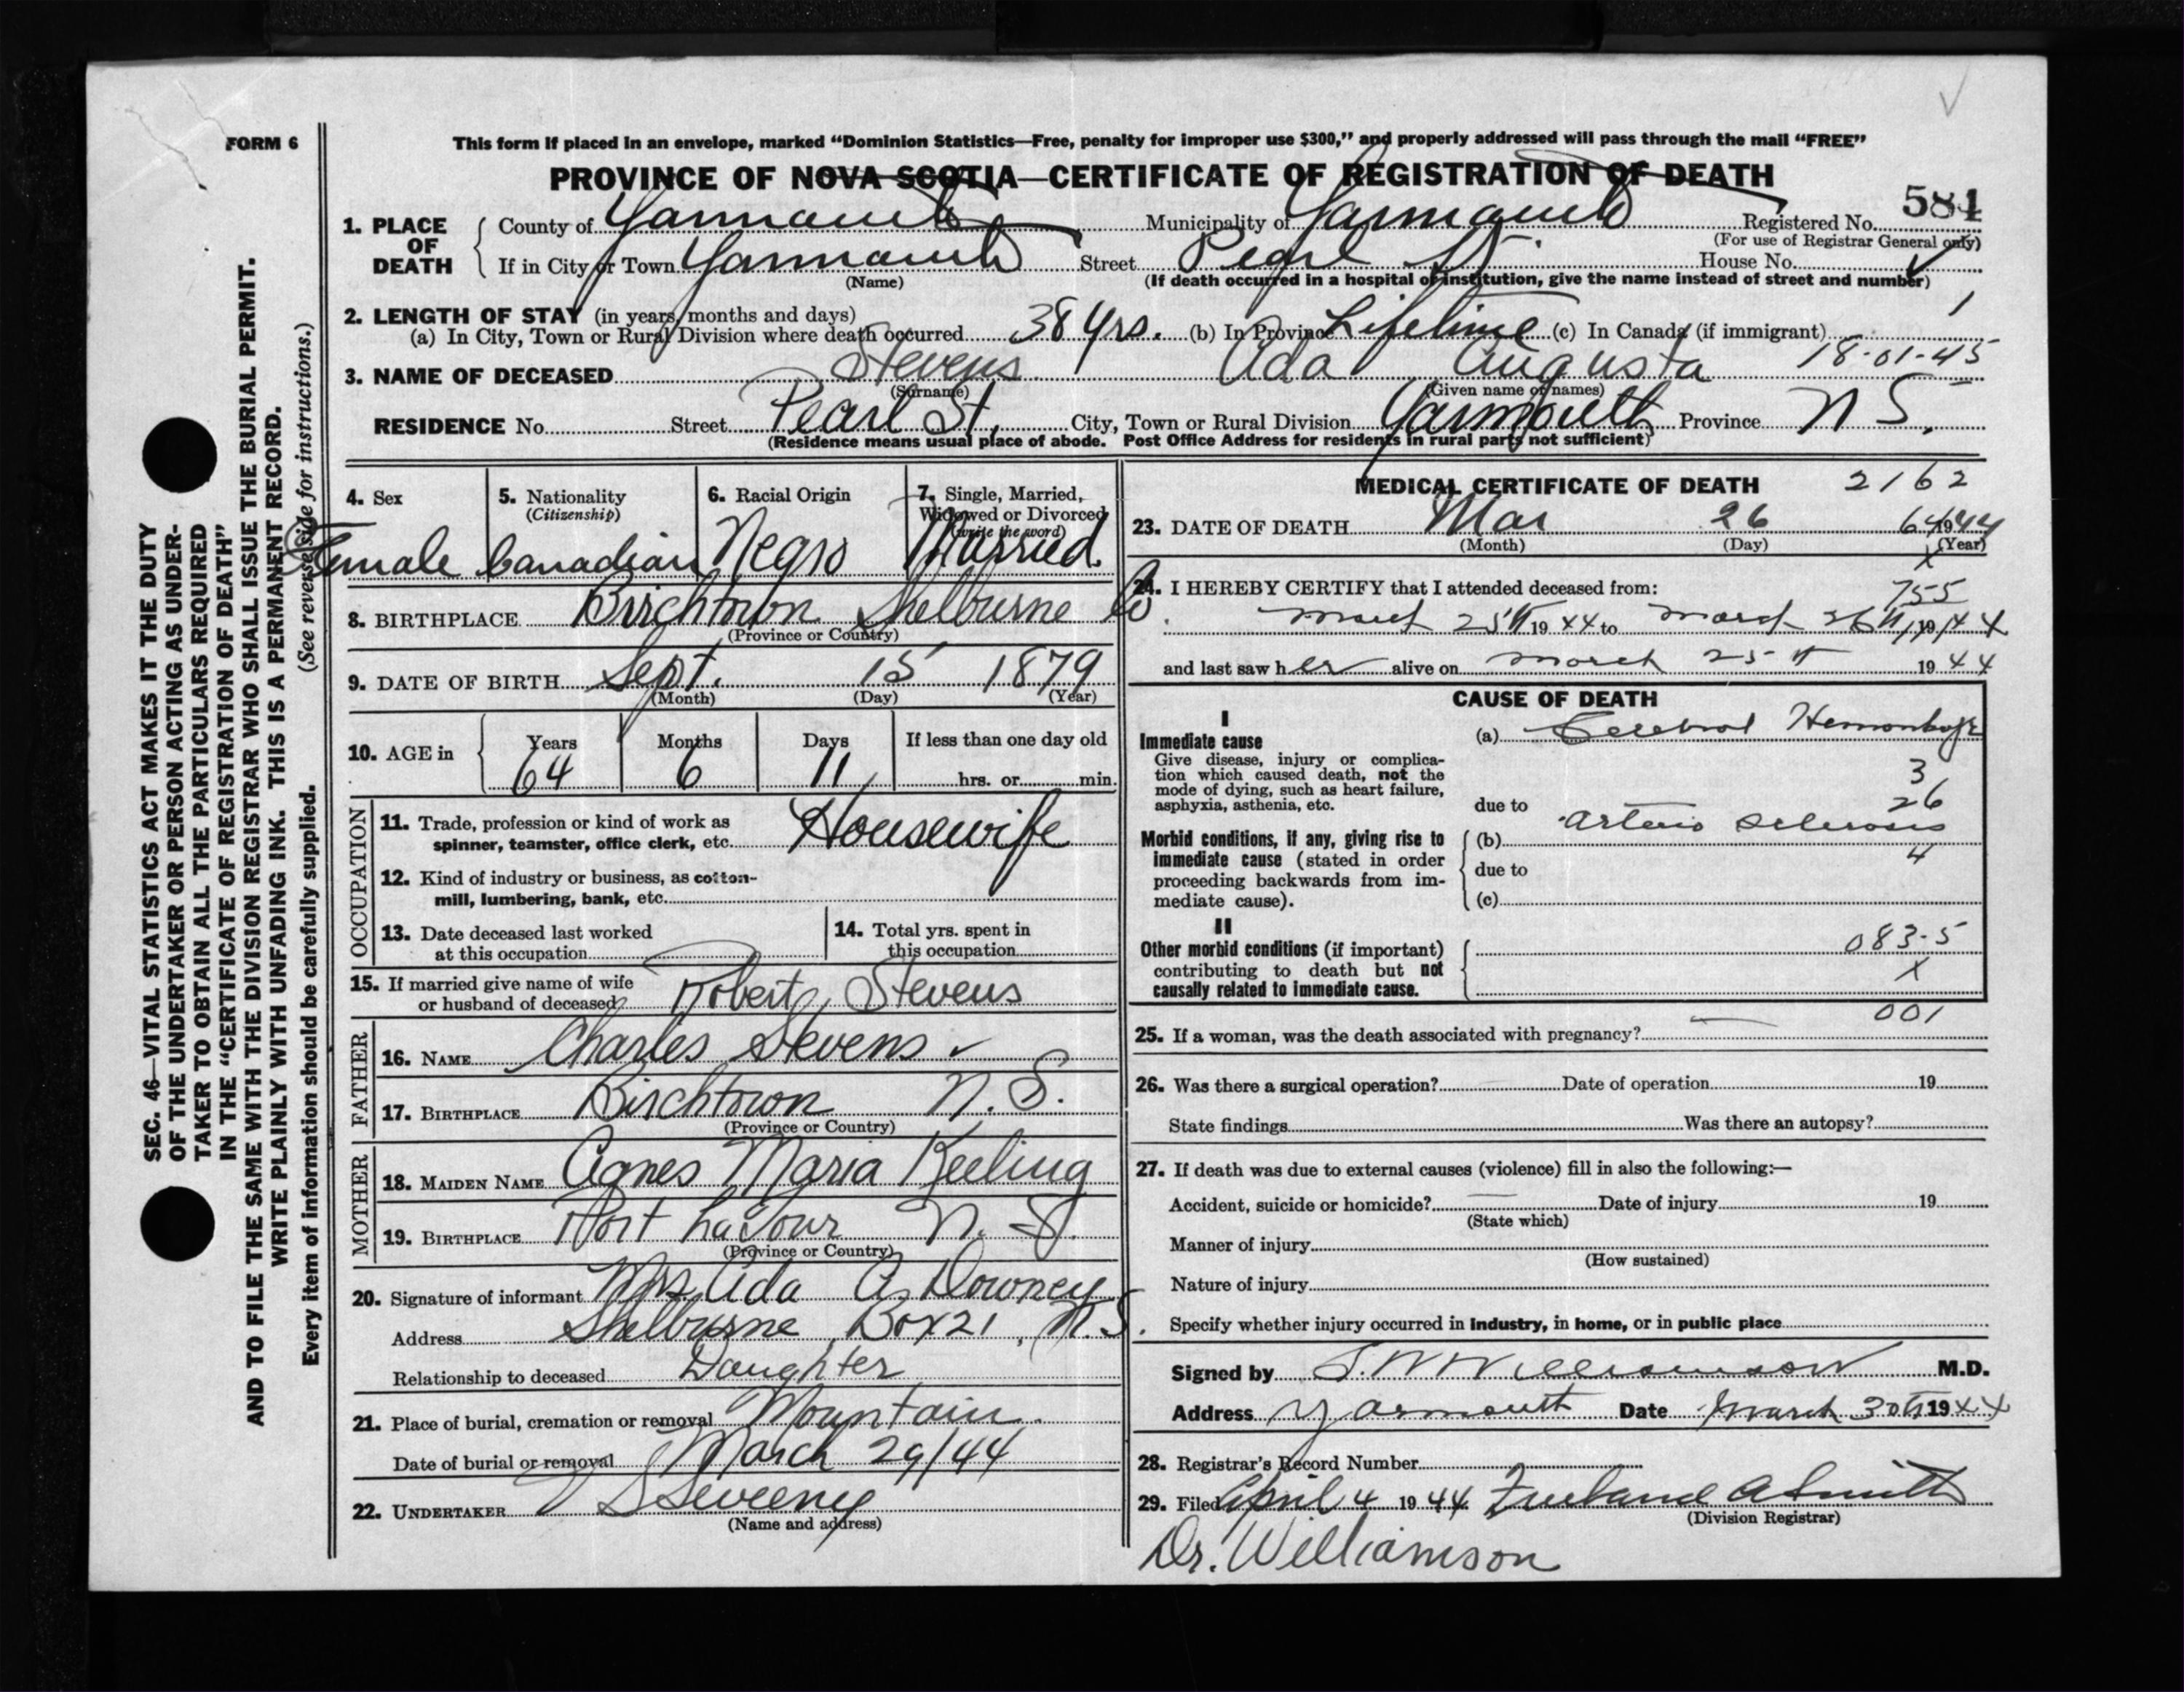 FORM 6
This form if placed in an envelope, marked “Dominion Statistics—Free, penalty for improper use $300,” and properly addressed will pass through the mail “FREE”
PROVINCE OF NOVA SCOTIA—CERTIFICATE OF REGISTRATION OF DEATH
584
1. PLACE OF DEATH
County of Yarmouth Municipality of Yarmouth Registered No.
(For use of Registrar General only)
If in City or Town Yarmouth Street Pearl St. House No.
(Name) (If death occurred in a hospital or institution, give the name instead of street and number)
2. LENGTH OF STAY (in years, months and days)
(a) In City, Town or Rural Division where death occurred 38 Yrs. (b) In Province Lifetime (c) In Canada (if immigrant)
3. NAME OF DECEASED Stevens Ada Augusta 18-01-45
(Surname) (Given name or names)
RESIDENCE No. Street Pearl St. City, Town or Rural Division Yarmouth Province N S.
(Residence means usual place of abode. Post Office Address for residents in rural parts not sufficient)
4. Sex
Female
5. Nationality
(Citizenship)
Canadian
6. Racial Origin
Negro
7. Single, Married,
Widowed or Divorced
(write the word)
Married
8. BIRTHPLACE Birchtown Shelburne Co.
(Province or Country)
9. DATE OF BIRTH Sept. 15 1879
(Month) (Day) (Year)
10. AGE in
Years Months Days If less than one day old
64 6 11 hrs. or min.
OCCUPATION
11. Trade, profession or kind of work as
spinner, teamster, office clerk, etc. Housewife
12. Kind of industry or business, as cotton-
mill, lumbering, bank, etc.
13. Date deceased last worked
at this occupation
14. Total yrs. spent in
this occupation
15. If married give name of wife
or husband of deceased Robert Stevens
FATHER
16. NAME Charles Stevens
17. BIRTHPLACE Birchtown N. S.
(Province or Country)
MOTHER
18. MAIDEN NAME Agnes Maria Keeling
19. BIRTHPLACE Port LaTour N. S.
(Province or Country)
20. Signature of informant Mrs. Ada A. Downey
Address Shelburne, Box 21, N.S.
Relationship to deceased Daughter
21. Place of burial, cremation or removal Mountain
Date of burial or removal March 29/44
22. UNDERTAKER V S Sweeny
(Name and address)
MEDICAL CERTIFICATE OF DEATH 2162
23. DATE OF DEATH Mar 26 1944
64
(Month) (Day) (Year)
x
24. I HEREBY CERTIFY that I attended deceased from:
755
March 25th 1944 to March 26th, 1944
and last saw her alive on March 25th 1944
CAUSE OF DEATH
I
Immediate cause
Give disease, injury or complica-
tion which caused death, not the
mode of dying, such as heart failure,
asphyxia, asthenia, etc.
(a) Cerebral Hemorrhage
3
26
due to
Morbid conditions, if any, giving rise to
immediate cause (stated in order
proceeding backwards from im-
mediate cause).
(b) Arterio Sclerosis
4
due to
(c)
II
Other morbid conditions (if important)
contributing to death but not
causally related to immediate cause.
083-5
x
001
25. If a woman, was the death associated with pregnancy? —
26. Was there a surgical operation? Date of operation 19
State findings Was there an autopsy?
27. If death was due to external causes (violence) fill in also the following:—
Accident, suicide or homicide? — Date of injury 19
(State which)
Manner of injury
(How sustained)
Nature of injury
Specify whether injury occurred in industry, in home, or in public place
Signed by Williamson M.D.
Address Yarmouth Date March 30th 1944
28. Registrar's Record Number
29. Filed April 4 1944
(Division Registrar)
Dr. Williamson
SEC. 46—VITAL STATISTICS ACT MAKES IT THE DUTY
OF THE UNDERTAKER OR PERSON ACTING AS UNDER-
TAKER TO OBTAIN ALL THE PARTICULARS REQUIRED
IN THE “CERTIFICATE OF REGISTRATION OF DEATH”
AND TO FILE THE SAME WITH THE DIVISION REGISTRAR WHO SHALL ISSUE THE BURIAL PERMIT.
WRITE PLAINLY WITH UNFADING INK. THIS IS A PERMANENT RECORD.
Every item of information should be carefully supplied. (See reverse side for instructions.)